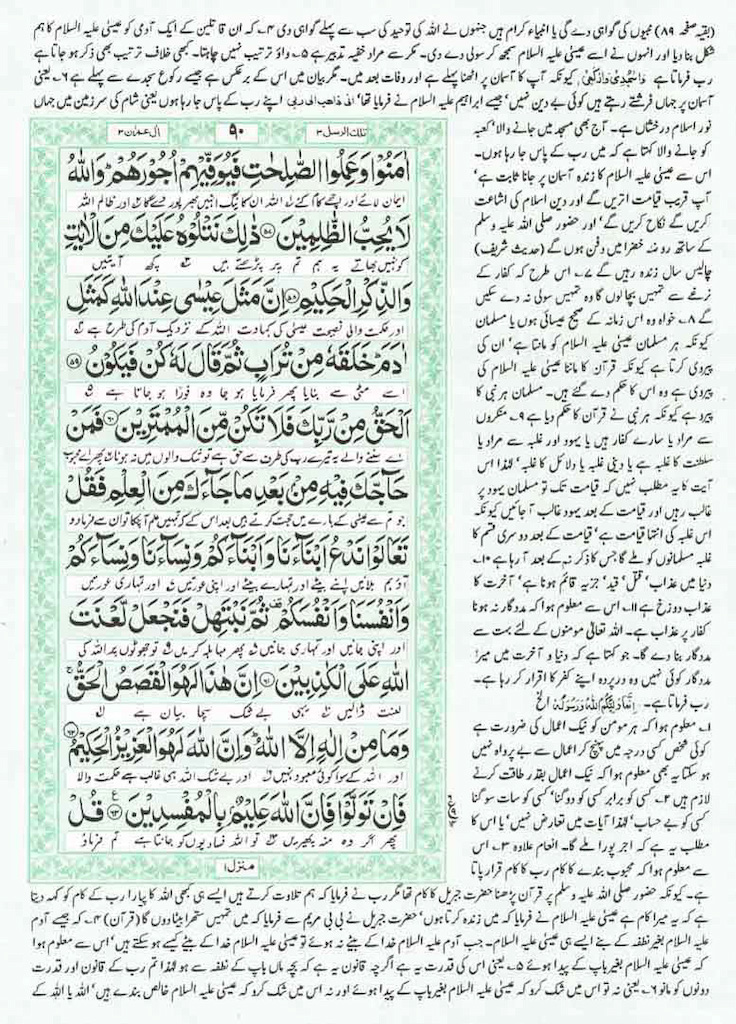 (بقیہ صفحہ ۸۹) نبیوں کی گواہی دے گی یا انبیاء کرام ہیں جنہوں نے اللہ کی توحید کی سب سے پہلے گواہی دی ۴۔ کہ ان قاتلین کے ایک آدمی کو عیسیٰ علیہ السلام کا ہم
شکل بنا دیا اور انہوں نے اسے عیسیٰ علیہ السلام سمجھ کر سولی دے دی۔ مکر سے مراد خفیہ تدبیر ہے ۵۔ واؤ ترتیب نہیں چاہتا۔ کبھی خلاف ترتیب بھی ذکر ہو جاتا ہے
رب فرماتا ہے وَاسْجُدِیْ وَارْکَعِیْ کیونکہ آپ کا آسمان پر اٹھنا پہلے ہے اور وفات بعد میں۔ مگر بیان میں اس کے برعکس ہے جیسے رکوع سجدے سے پہلے ہے ۶۔ یعنی
آسمان پر جہاں فرشتے رہتے ہیں کوئی بے دین نہیں' جیسے ابراہیم علیہ السلام نے فرمایا تھا' انی ذاھب الی ربی اپنے رب کے پاس جا رہا ہوں یعنی شام کی سرزمین میں جہاں
نور اسلام درخشاں ہے۔ آج بھی مسجد میں جانے والا' کعبہ
کو جانے والا کہتا ہے کہ میں رب کے پاس جا رہا ہوں۔
اس سے عیسیٰ علیہ السلام کا زندہ آسمان پر جانا ثابت ہے'
آپ قریب قیامت اتریں گے اور دین اسلام کی اشاعت
کریں گے نکاح کریں گے' اور حضور صلی اللہ علیہ وسلم
کے ساتھ روضہ خضرا میں دفن ہوں گے (حدیث شریف)
چالیس سال زندہ رہیں گے ۷۔ اس طرح کہ کفار کے
نرغے سے تمہیں بچا لوں گا وہ تمہیں سولی نہ دے سکیں
گے ۸۔ خواہ وہ اس زمانہ کے صحیح عیسائی ہوں یا مسلمان
کیونکہ ہر مسلمان عیسیٰ علیہ السلام کو مانتا ہے' ان کی
پیروی کرتا ہے کیونکہ قرآن کا ماننا عیسیٰ علیہ السلام کی
پیروی ہے وہ اس کا حکم دے گئے ہیں۔ مسلمان ہر نبی کا
پیرو ہے کیونکہ ہر نبی نے قرآن کا حکم دیا ہے ۹۔ منکروں
سے مراد یا سارے کفار ہیں یا یہود اور غلبہ سے مراد یا
سلطنت کا غلبہ ہے یا دینی غلبہ یا دلائل کا غلبہ' لہٰذا اس
آیت کا یہ مطلب نہیں کہ قیامت تک تو مسلمان یہود پر
غالب رہیں اور قیامت کے بعد یہود غالب آ جائیں کیونکہ
اس غلبہ کی انتہا قیامت ہے' قیامت کے بعد دوسری قسم کا
غلبہ مسلمانوں کو ملے گا جس کا ذکر نہ کے بعد آ رہا ہے ۱۰۔
دنیا میں عذاب' قتل' قید' جزیہ قائم ہونا ہے' آخرت کا
عذاب دوزخ ہے ۱۱۔ اس سے معلوم ہوا کہ مددگار نہ ہونا
کفار پر عذاب ہے۔ اللہ تعالیٰ مومنوں کے لئے بہت سے
مددگار بنا دے گا۔ جو کہتا ہے کہ دنیا و آخرت میں میرا
مددگار کوئی نہیں وہ درپردہ اپنے کفر کا اقرار کر رہا ہے۔
رب فرماتا ہے۔ اِنَّمَا وَلِیُّکُمُ اللّٰہُ وَرَسُوْلُہٗ الخ
۱۔ معلوم ہوا کہ ہر مومن کو نیک اعمال کی ضرورت ہے
کوئی شخص کسی درجہ میں پہنچ کر اعمال سے بے پرواہ نہیں
ہو سکتا یہ بھی معلوم ہوا کہ نیک اعمال بقدر طاقت کرنے
لازم ہیں ۲۔ کسی کو برابر کسی کو دوگنا' کسی کو سات سو گنا
کسی کو بے حساب' لہٰذا آیات میں تعارض نہیں' یا اس کا
مطلب یہ ہے کہ اجر پورا ملے گا۔ انعام علاوہ ۳۔ اس
سے معلوم ہوا کہ محبوب بندے کا کام رب کا کام قرار پاتا
تلك الرسل ۳
۹۰
آل عمران ۳
اٰمَنُوْا وَعَمِلُوا الصّٰلِحٰتِ فَيُوَفِّيْهِمْ اُجُوْرَهُمْ ؕ وَاللّٰهُ
ایمان لائے اور اچھے کام کئے اللہ ان کا نیگ انہیں بھرپور دے گا اور ظالم اللہ
لَا يُحِبُّ الظّٰلِمِيْنَ ﴿۵۷﴾ ذٰلِكَ نَتْلُوْهُ عَلَيْكَ مِنَ الْاٰيٰتِ
کو نہیں بھاتے یہ ہم تم پر پڑھتے ہیں کچھ آیتیں
وَالذِّكْرِ الْحَكِيْمِ ﴿۵۸﴾ اِنَّ مَثَلَ عِيْسٰى عِنْدَ اللّٰهِ كَمَثَلِ
اور حکمت والی نصیحت عیسیٰ کی کہاوت اللہ کے نزدیک آدم کی طرح ہے
اٰدَمَ ؕ خَلَقَهٗ مِنْ تُرَابٍ ثُمَّ قَالَ لَهٗ كُنْ فَيَكُوْنُ ﴿۵۹﴾
اسے مٹی سے بنایا پھر فرمایا ہو جا وہ فورًا ہو جاتا ہے
اَلْحَقُّ مِنْ رَّبِّكَ فَلَا تَكُنْ مِّنَ الْمُمْتَرِيْنَ ﴿۶۰﴾ فَمَنْ
اے سننے والے یہ تیرے رب کی طرف سے حق ہے تو شک والوں میں نہ ہونا پھر اے محبوب
حَآجَّكَ فِيْهِ مِنْۢ بَعْدِ مَا جَآءَكَ مِنَ الْعِلْمِ فَقُلْ
جو تم سے عیسیٰ کے بارے میں حجت کریں بعد اس کے کہ تمہیں علم آ چکا تو ان سے فرما دو
تَعَالَوْا نَدْعُ اَبْنَآءَنَا وَاَبْنَآءَكُمْ وَنِسَآءَنَا وَنِسَآءَكُمْ
آؤ ہم بلائیں اپنے بیٹے اور تمہارے بیٹے اور اپنی عورتیں اور تمہاری عورتیں
وَاَنْفُسَنَا وَاَنْفُسَكُمْ ۫ ثُمَّ نَبْتَهِلْ فَنَجْعَلْ لَّعْنَتَ
اور اپنی جانیں اور تمہاری جانیں پھر مباہلہ کریں تو جھوٹوں پر اللہ کی
اللّٰهِ عَلَى الْكٰذِبِيْنَ ﴿۶۱﴾ اِنَّ هٰذَا لَهُوَ الْقَصَصُ الْحَقُّ ۚ
لعنت ڈالیں یہی بے شک سچا بیان ہے
وَمَا مِنْ اِلٰهٍ اِلَّا اللّٰهُ ؕ وَاِنَّ اللّٰهَ لَهُوَ الْعَزِيْزُ الْحَكِيْمُ ﴿۶۲﴾
اور اللہ کے سوا کوئی معبود نہیں اور بے شک اللہ ہی غالب ہے حکمت والا
فَاِنْ تَوَلَّوْا فَاِنَّ اللّٰهَ عَلِيْمٌۢ بِالْمُفْسِدِيْنَ ﴿۶۳﴾ قُلْ
پھر اگر وہ منہ پھیریں تو اللہ فسادیوں کو جانتا ہے تم فرماؤ
منزل۱
ہے۔ کیونکہ حضور صلی اللہ علیہ وسلم پر قرآن پڑھنا حضرت جبریل کا کام تھا مگر رب نے فرمایا کہ ہم تلاوت کرتے ہیں ایسے ہی کبھی اللہ کا پیارا رب کے کام کو کہہ دیتا
ہے کہ یہ میرا کام ہے عیسیٰ علیہ السلام نے فرمایا کہ میں زندہ کرتا ہوں' حضرت جبریل نے بی بی مریم سے فرمایا کہ میں تمہیں ستھرا بیٹا دوں گا (قرآن) ۴۔ کہ جیسے آدم
علیہ السلام بغیر نطفہ کے بنے ایسے ہی عیسیٰ علیہ السلام۔ جب آدم علیہ السلام خدا کے بیٹے نہ ہوئے تو عیسیٰ علیہ السلام خدا کے بیٹے کیسے ہو سکتے ہیں' اس سے معلوم ہوا
کہ عیسیٰ علیہ السلام بغیر باپ کے پیدا ہوئے ۵۔ یعنی اس کی قدرت یہ ہے اگرچہ قانون یہ ہے کہ بچہ ماں باپ کے نطفہ سے ہو لہٰذا تم رب کے قانون اور قدرت
دونوں کو مانو ۶۔ یعنی نہ تو اس میں شک کرو کہ عیسیٰ علیہ السلام بغیر باپ کے پیدا ہوئے اور نہ اس میں شک کرو کہ عیسیٰ علیہ السلام خالص بندے ہیں' اللہ یا اللہ کے